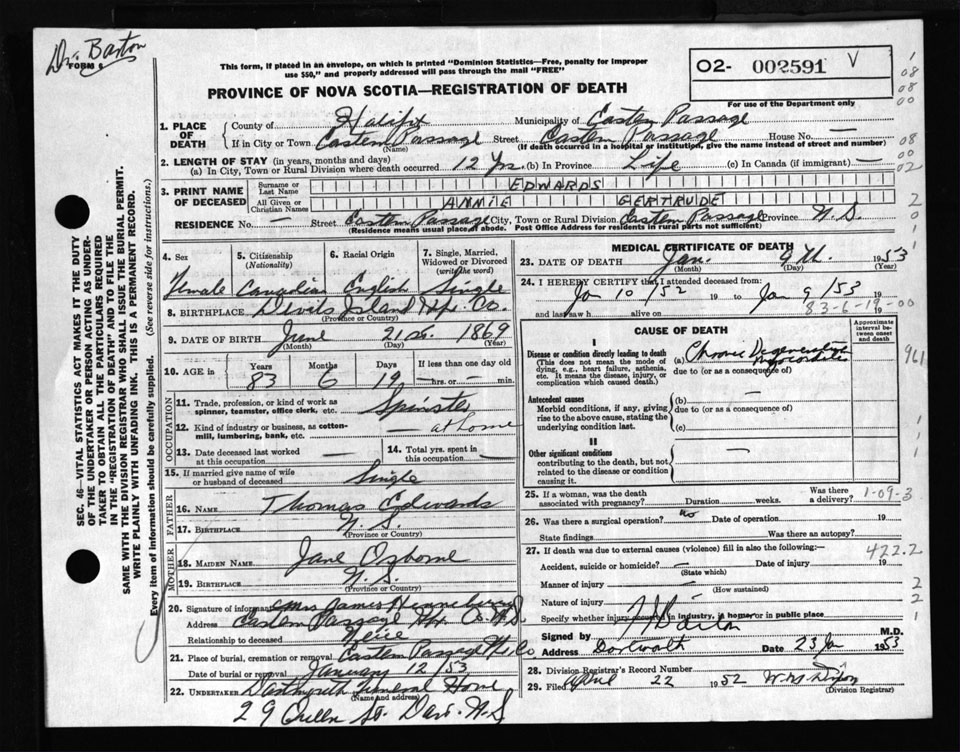 Dr. Barton
FORM 8
This form, if placed in an envelope, on which is printed "Dominion Statistics—Free, penalty for improper
use $50," and properly addressed will pass through the mail "FREE"
O2- 002591 V
PROVINCE OF NOVA SCOTIA—REGISTRATION OF DEATH
For use of the Department only
1. PLACE OF DEATH County of Halifx Municipality of Eastern Passage
If in City or Town Eastern Passage Street Eastern Passage House No. —
(Name) (If death occurred in a hospital or institution, give the name instead of street and number)
2. LENGTH OF STAY (in years, months and days)
(a) In City, Town or Rural Division where death occurred 12 Yrs. (b) In Province Life (c) In Canada (if immigrant) —
3. PRINT NAME OF DECEASED Surname or Last Name EDWARDS
All Given or Christian Names ANNIE GERTRUDE
RESIDENCE No. — Street Eastern Passage City, Town or Rural Division Eastern Passage Province N.S.
(Residence means usual place of abode. Post Office Address for residents in rural parts not sufficient)
4. Sex 5. Citizenship (Nationality) 6. Racial Origin 7. Single, Married, Widowed or Divorced (write the word)
Female Canadian English Single
8. BIRTHPLACE Devils Island Hfx. Co.
(Province or Country)
9. DATE OF BIRTH June 21st. 1869
(Month) (Day) (Year)
10. AGE in Years Months Days If less than one day old
83 6 19 — hrs. or — min.
OCCUPATION
11. Trade, profession, or kind of work as spinner, teamster, office clerk, etc. Spinster
12. Kind of industry or business, as cotton-mill, lumbering, bank, etc. — at home
13. Date deceased last worked at this occupation — 14. Total yrs. spent in this occupation —
15. If married give name of wife or husband of deceased Single
FATHER
16. NAME Thomas Edwards
17. BIRTHPLACE N.S.
(Province or Country)
MOTHER
18. MAIDEN NAME Jane Osborne
19. BIRTHPLACE N.S.
(Province or Country)
20. Signature of informant Mrs James Henneberry
Address Eastern Passage Hfx. Co. N.S
Relationship to deceased Neice
21. Place of burial, cremation or removal Eastern Passage Hx. Co
Date of burial or removal January 12/53
22. UNDERTAKER Dartmouth Funeral Home
(Name and address)
29 Queen St. Dart. N.S
MEDICAL CERTIFICATE OF DEATH
23. DATE OF DEATH Jan. 9th. 1953
(Month) (Day) (Year)
24. I HEREBY CERTIFY that I attended deceased from:
Jan 10/52 19 to Jan 9/53 19
and last saw h alive on 19
83-6-19-00
CAUSE OF DEATH
Approximate interval between onset and death
I
Disease or condition directly leading to death
(This does not mean the mode of dying, e.g., heart failure, asthenia, etc. It means the disease, injury, or complication which caused death.)
(a) Chronic Degenerative
due to (or as a consequence of)
Antecedent causes
Morbid conditions, if any, giving rise to the above cause, stating the underlying condition last.
(b) —
due to (or as a consequence of)
(c)
II
Other significant conditions
contributing to the death, but not related to the disease or condition causing it.
25. If a woman, was the death associated with pregnancy? Duration weeks. Was there a delivery?
1-09-3
26. Was there a surgical operation? no Date of operation 19
State findings Was there an autopsy?
27. If death was due to external causes (violence) fill in also the following:—
422.2
Accident, suicide or homicide? — Date of injury 19
(State which)
Manner of injury —
(How sustained)
Nature of injury
Specify whether injury occurred in industry, in home or in public place
Signed by M.D.
Address Dartmouth Date 23 Jan 1953
28. Division Registrar's Record Number
29. Filed April 22 1952 W.M. Dixon
(Division Registrar)
SEC. 46—VITAL STATISTICS ACT MAKES IT THE DUTY
OF THE UNDERTAKER OR PERSON ACTING AS UNDER-
TAKER TO OBTAIN ALL THE PARTICULARS REQUIRED
IN THE "REGISTRATION OF DEATH" AND TO FILE THE
SAME WITH THE DIVISION REGISTRAR WHO SHALL ISSUE THE BURIAL PERMIT.
WRITE PLAINLY WITH UNFADING INK. THIS IS A PERMANENT RECORD.
Every item of information should be carefully supplied. (See reverse side for instructions.)